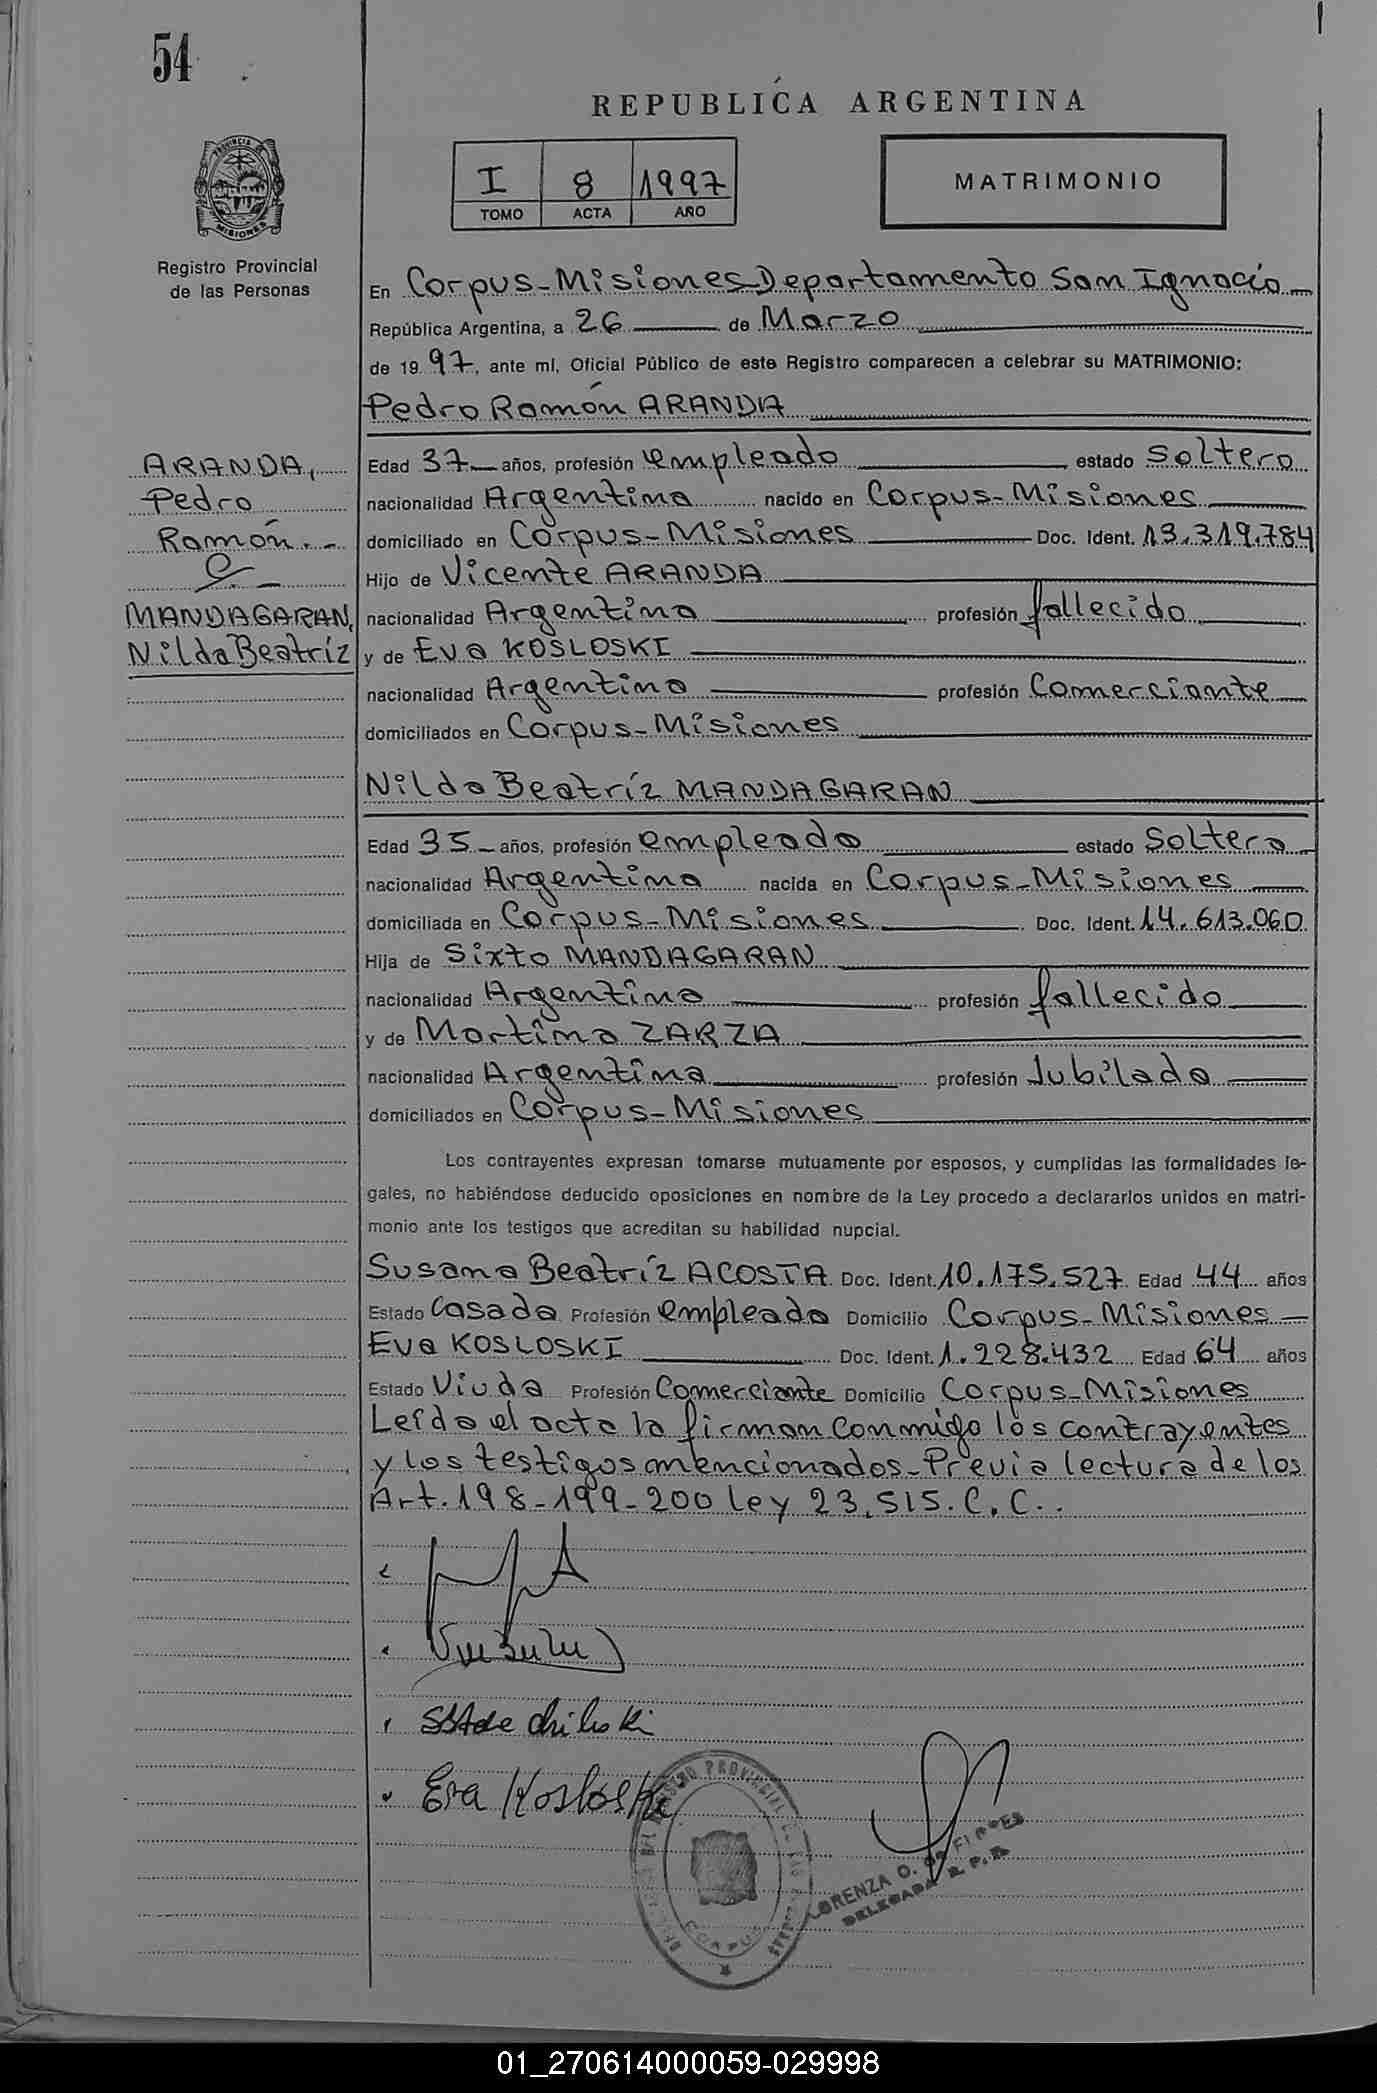 54
REPUBLICA ARGENTINA
I 8 1997
TOMO ACTA AÑO
MATRIMONIO
PROVINCIA DE
MISIONES
Registro Provincial
de las Personas
En Corpus-Misiones Departamento San Ignacio
República Argentina, a 26 de Marzo
de 1997, ante mí, Oficial Público de este Registro comparecen a celebrar su MATRIMONIO:
Pedro Ramón ARANDA
ARANDA,
Pedro
Ramón.-
MANDAGARAN,
Nilda Beatríz
Edad 37 años, profesión empleado estado Soltero
nacionalidad Argentina nacido en Corpus-Misiones
domiciliado en Corpus-Misiones Doc. Ident. 13.319.784
Hijo de Vicente ARANDA
nacionalidad Argentina profesión fallecido
y de Eva KOSLOSKI
nacionalidad Argentina profesión Comerciante
domiciliados en Corpus-Misiones
Nilda Beatríz MANDAGARAN
Edad 35 años, profesión empleada estado Soltera
nacionalidad Argentina nacida en Corpus-Misiones
domiciliada en Corpus-Misiones Doc. Ident. 14.613.060
Hija de Sixto MANDAGARAN
nacionalidad Argentina profesión fallecido
y de Martina ZARZA
nacionalidad Argentina profesión Jubilada
domiciliados en Corpus-Misiones
Los contrayentes expresan tomarse mutuamente por esposos, y cumplidas las formalidades le-
gales, no habiéndose deducido oposiciones en nombre de la Ley procedo a declararlos unidos en matri-
monio ante los testigos que acreditan su habilidad nupcial.
Susana Beatríz ACOSTA Doc. Ident. 10.175.527 Edad 44 años
Estado Casada Profesión empleada Domicilio Corpus-Misiones
Eva KOSLOSKI Doc. Ident. 1.228.432 Edad 64 años
Estado Viuda Profesión Comerciante Domicilio Corpus-Misiones
Leída el acta la firman conmigo los contrayentes
y los testigos mencionados-Previa lectura de los
Art. 198-199-200 ley 23.515. C.C..
Eva Kosloski
CORPUS
LORENZA O. de FLORES
DELEGADA R. P. P.
01_270614000059-029998